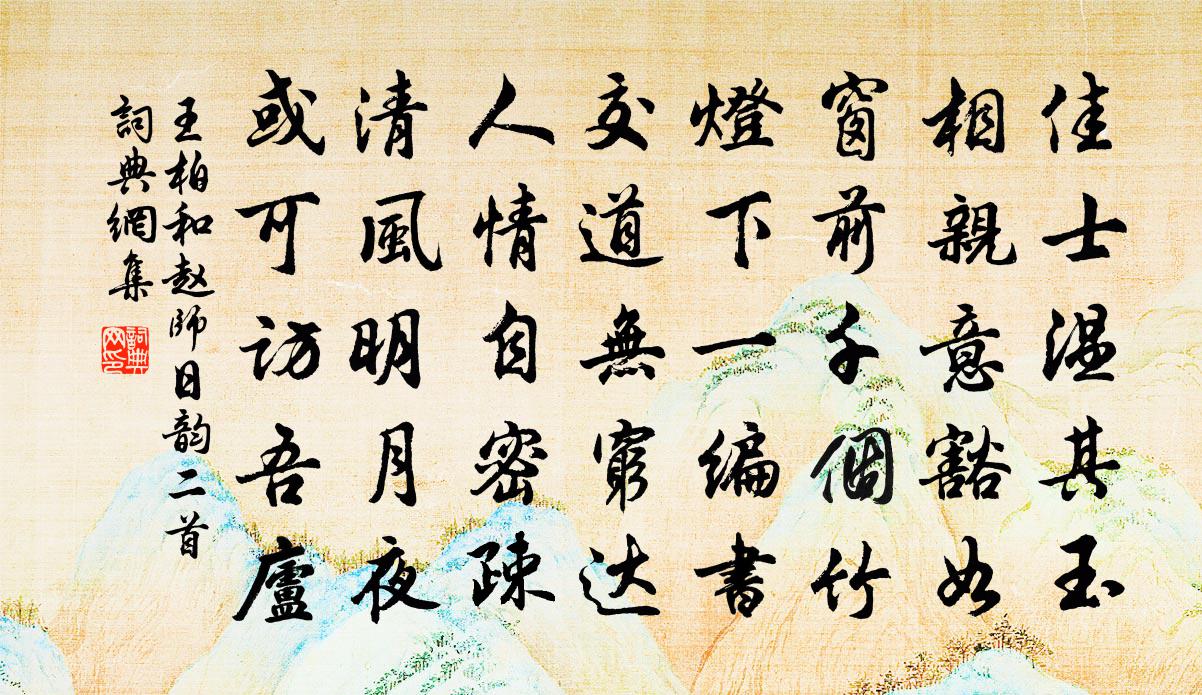 佳士温其玉
相親意豁如
窗前千個竹
燈下一編書
交道無窮达
人情自密疎
清風明月夜
或可訪吾廬
王柏和赵師日韵二首
詞典網集
詞典网印